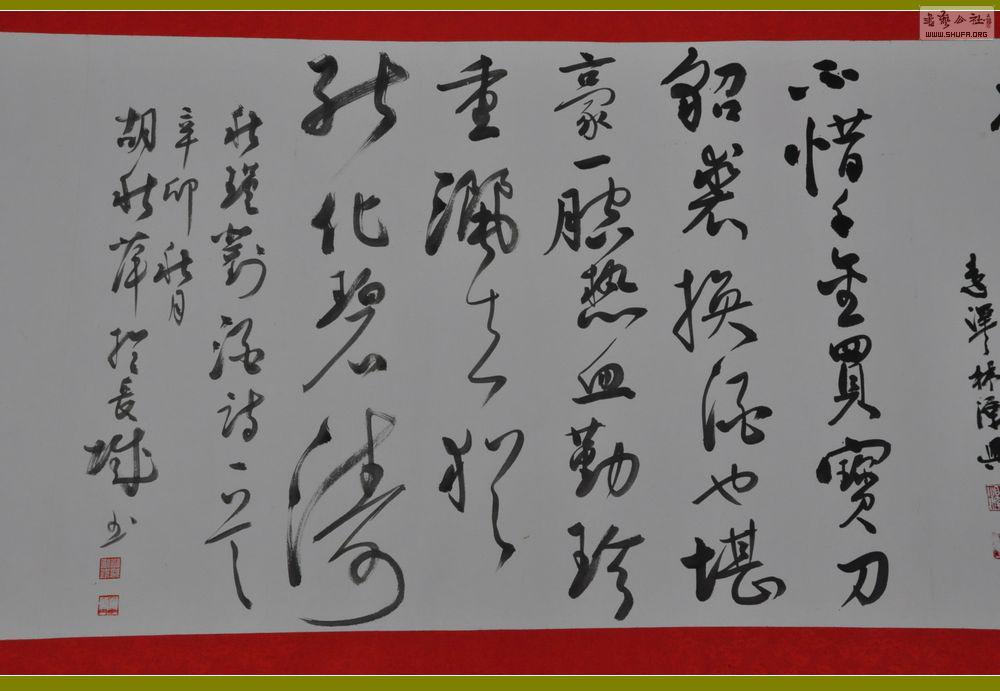 不惜千金買寶刀
貂裘換酒也堪
豪一腔熱血勤珍
重灑去猶
能化碧濤
秋瑾對酒詩一首
辛卯秋月
胡秋萍於長城
書法公社
WWW.SHUFA.ORG